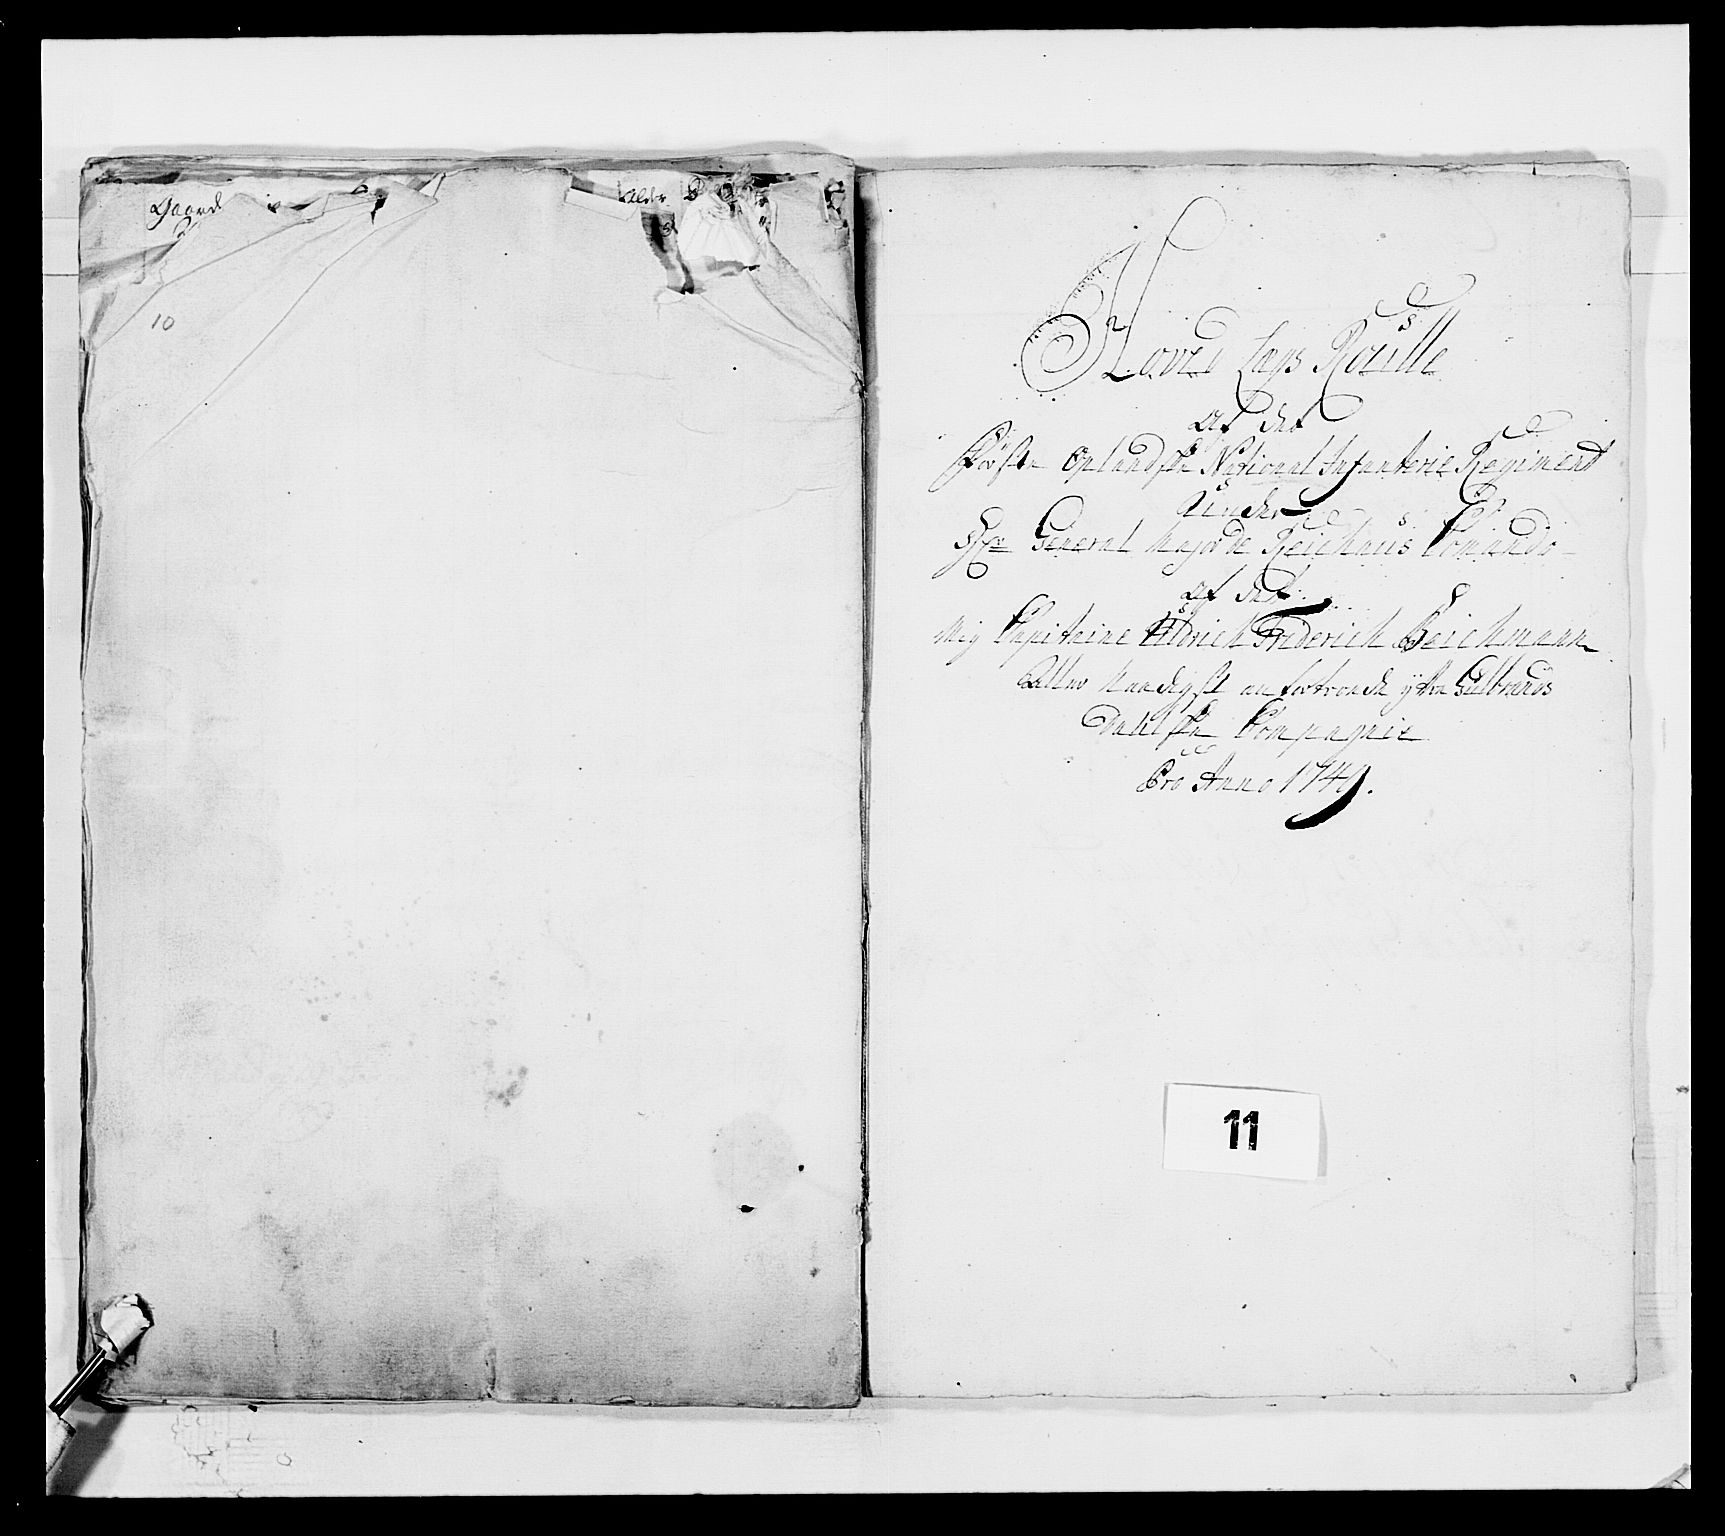 Gaard
Alder
10
Hoved Lægs Roulle
Af det
Første Oplandske National Infanterie Regiment
Under
Hr General Major de Reichaus Comando
Af det
Mig Capitaine Uldrich Friderich Reichmann
Aller Naadigst anfortroede ÿttre Gulbrands
Dahlske Compagnie
Pro Anno 1749.
11